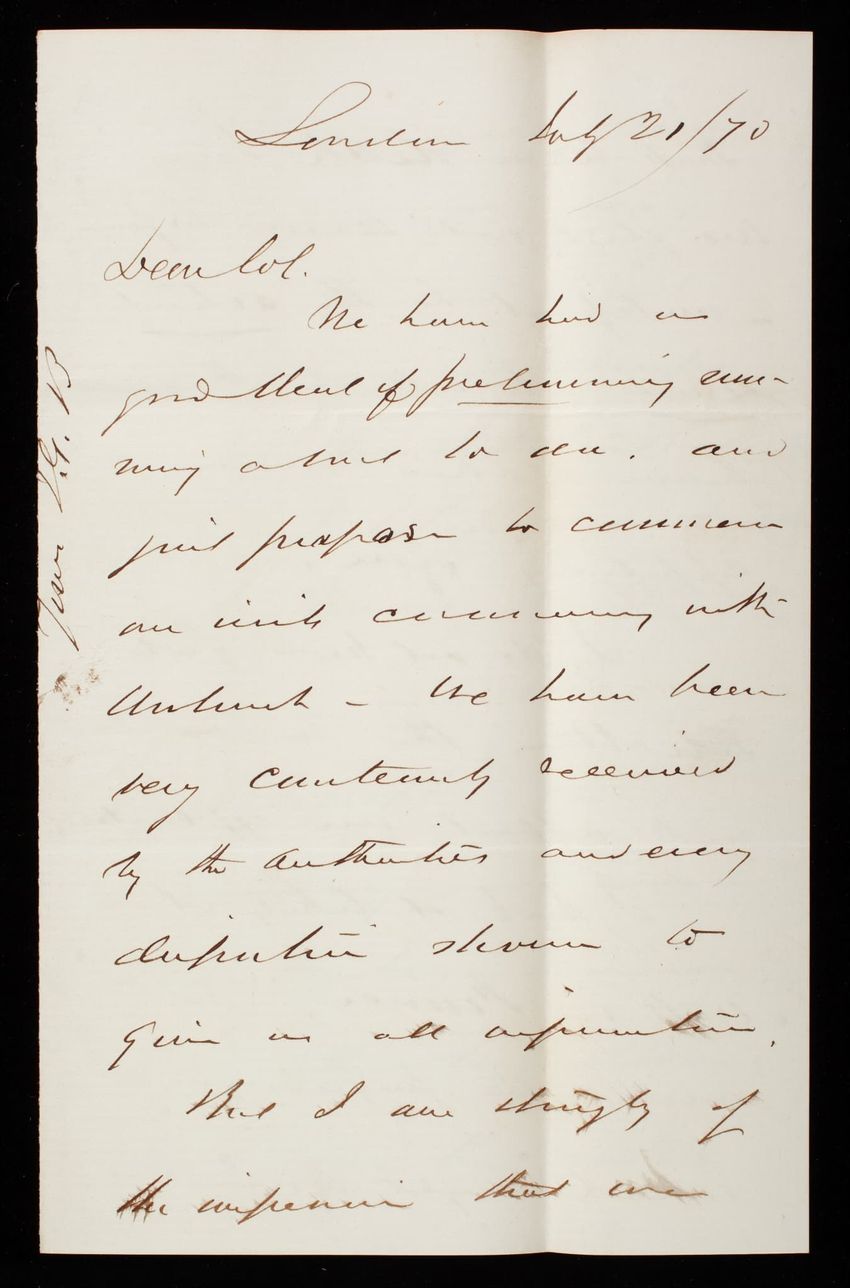 London July 21/70
Dear Col.
We have had a
good deal of preliminary run-
ning about to do. and
just propose to commence
our visits commencing with
Woolwich - We have been
very courteously received
by the Authorities and every
disposition shown to
give us all information.
But I am strongly of
the impression that we